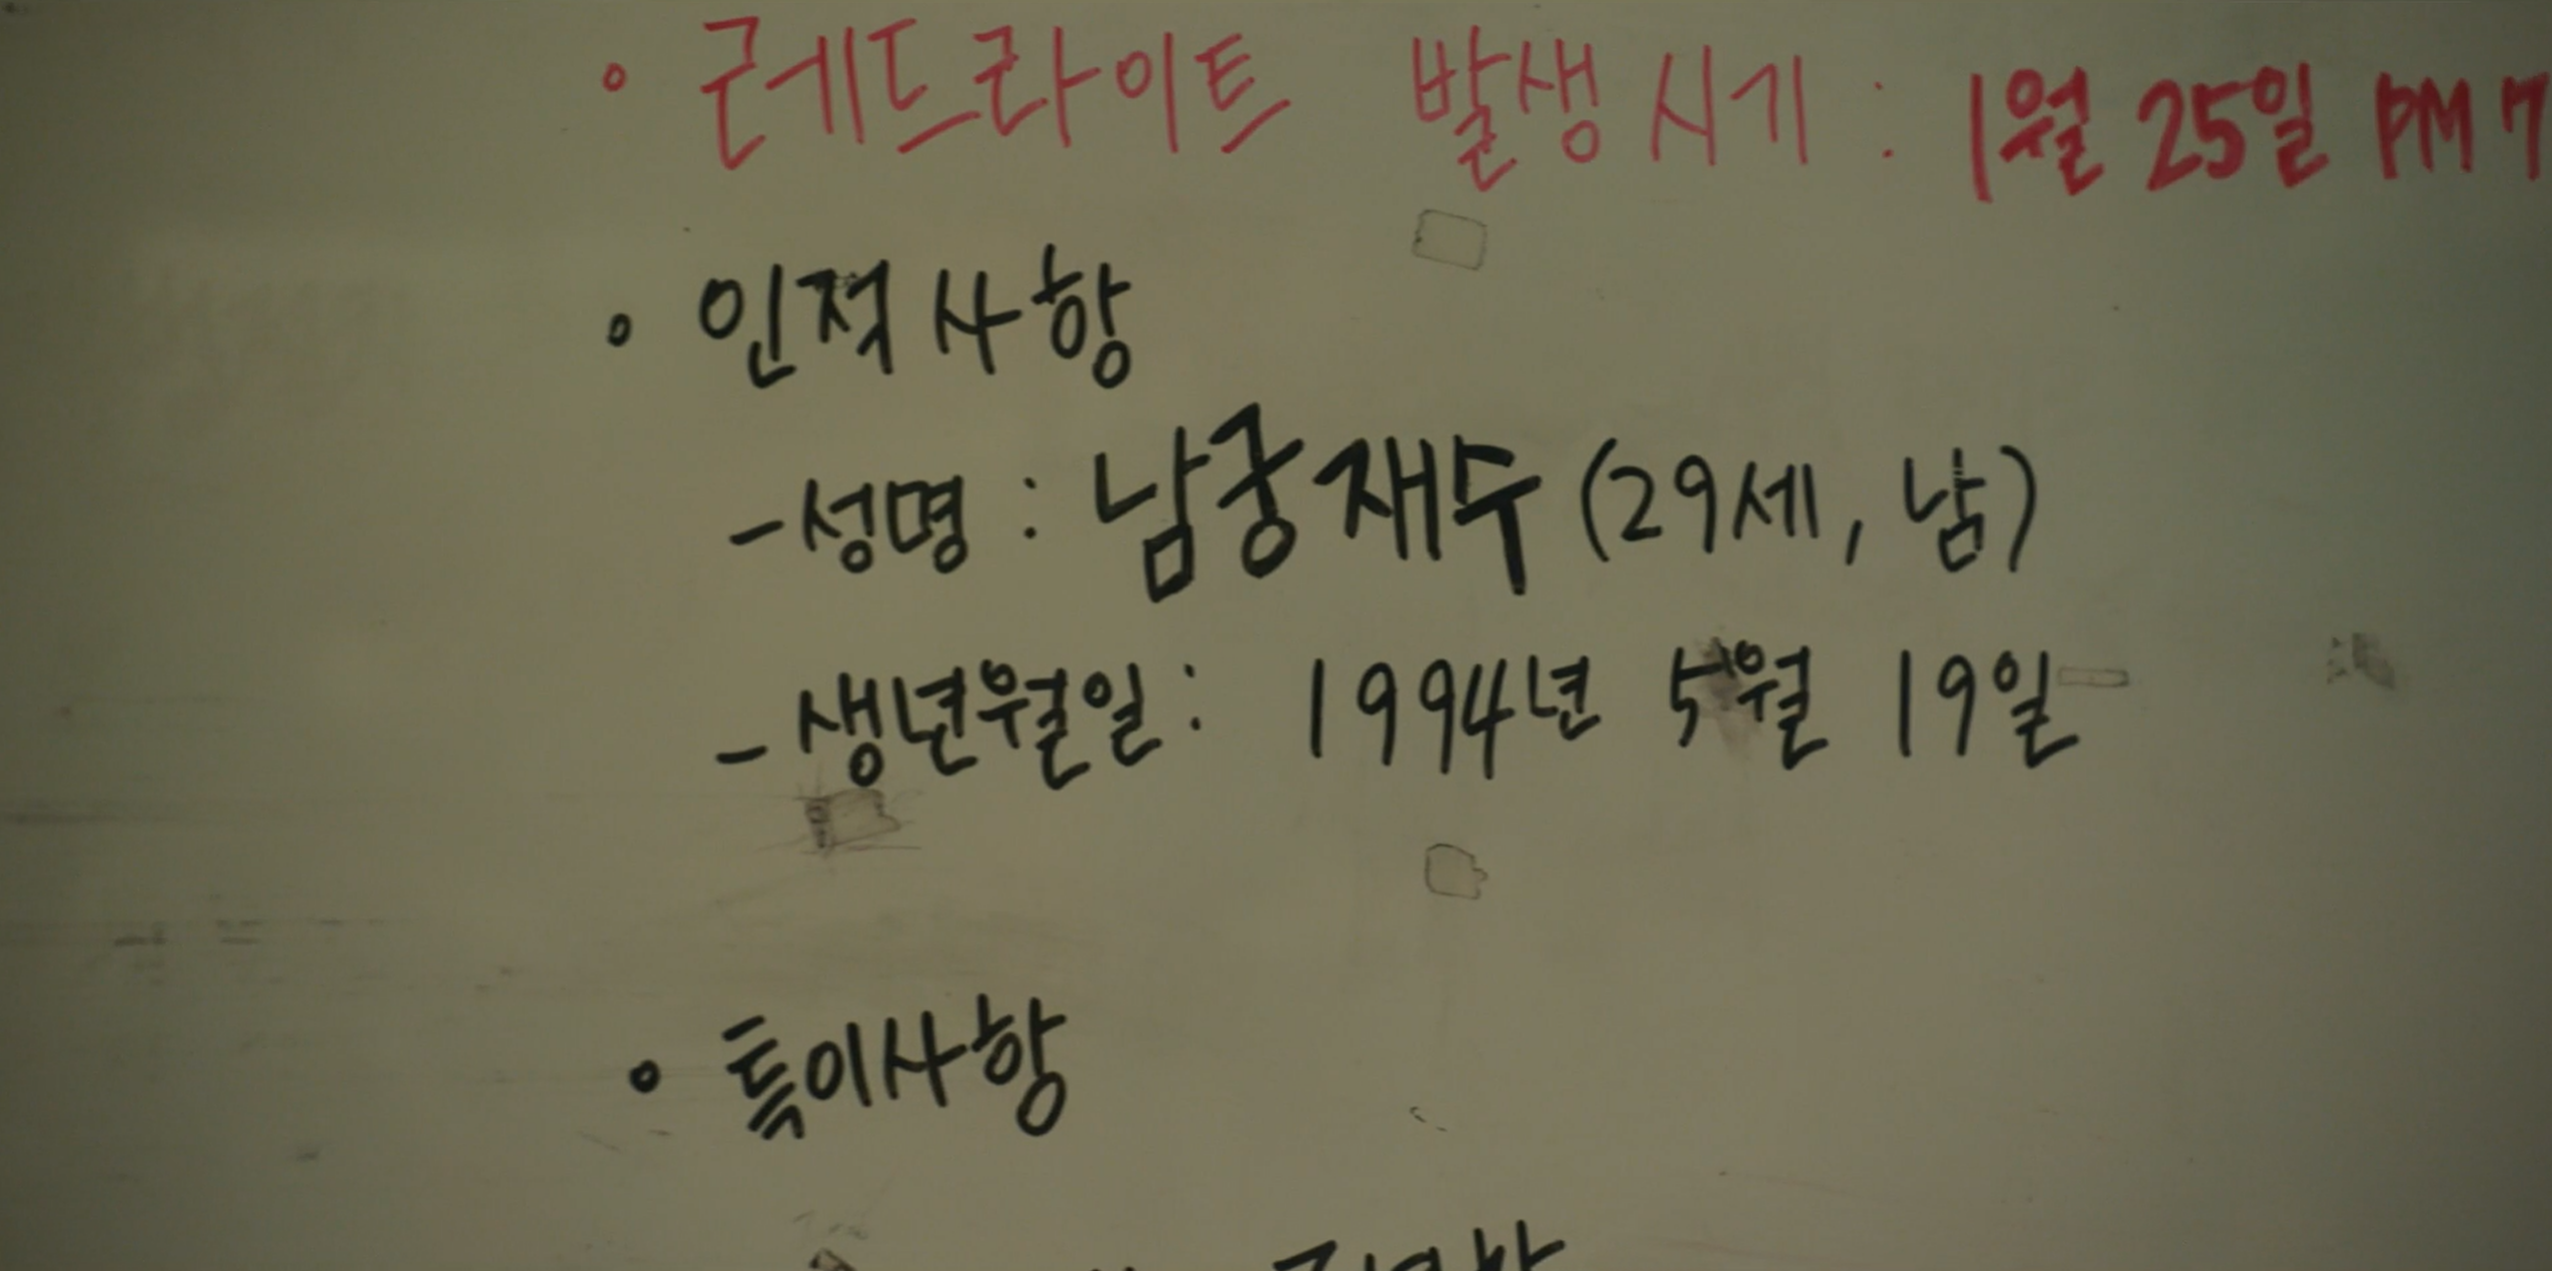 • 레드라이트 발생시기 : 1월 25일 PM 7
• 인적사항
- 성명 : 남궁재수 (29세, 남)
- 생년월일 : 1994년 5월 19일
• 특이사항